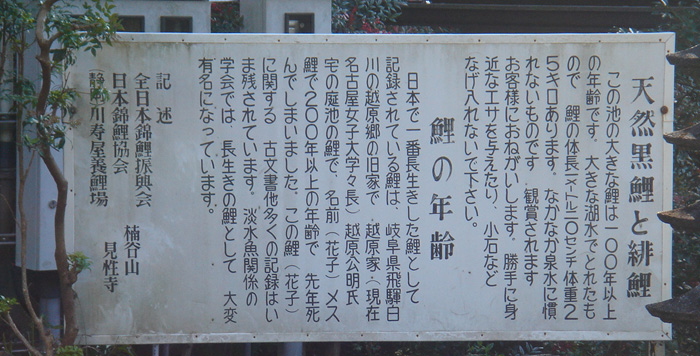 天然黒鯉と緋鯉
この池の大きな鯉は一〇〇年以上
の年齢です。大きな湖水でとれたも
ので 鯉の体長一メートル二〇センチ体重2
5キロあります。なかなか泉水に慣
れないものです 観賞されます
お客様におねがいします。勝手に身
近なエサを与えたり、小石など
なげ入れないで下さい。
鯉の年齢
日本で一番長生きした鯉として
記録されている鯉は、岐阜県飛騨白
川の越原郷の旧家で 越原家(現在
名古屋女子大学々長)越原公明氏
宅の庭池の鯉で、名前(花子)メス
鯉で200年以上の年齢で 先年死
んでしまいました。この鯉(花子)
に関する 古文書他多くの記録はい
ま残されています。淡水魚関係の
学会では、長生きの鯉として 大変
有名になっています。
記述
全日本錦鯉振興会
日本錦鯉協会 楠谷山
川寿屋養鯉場 見性寺